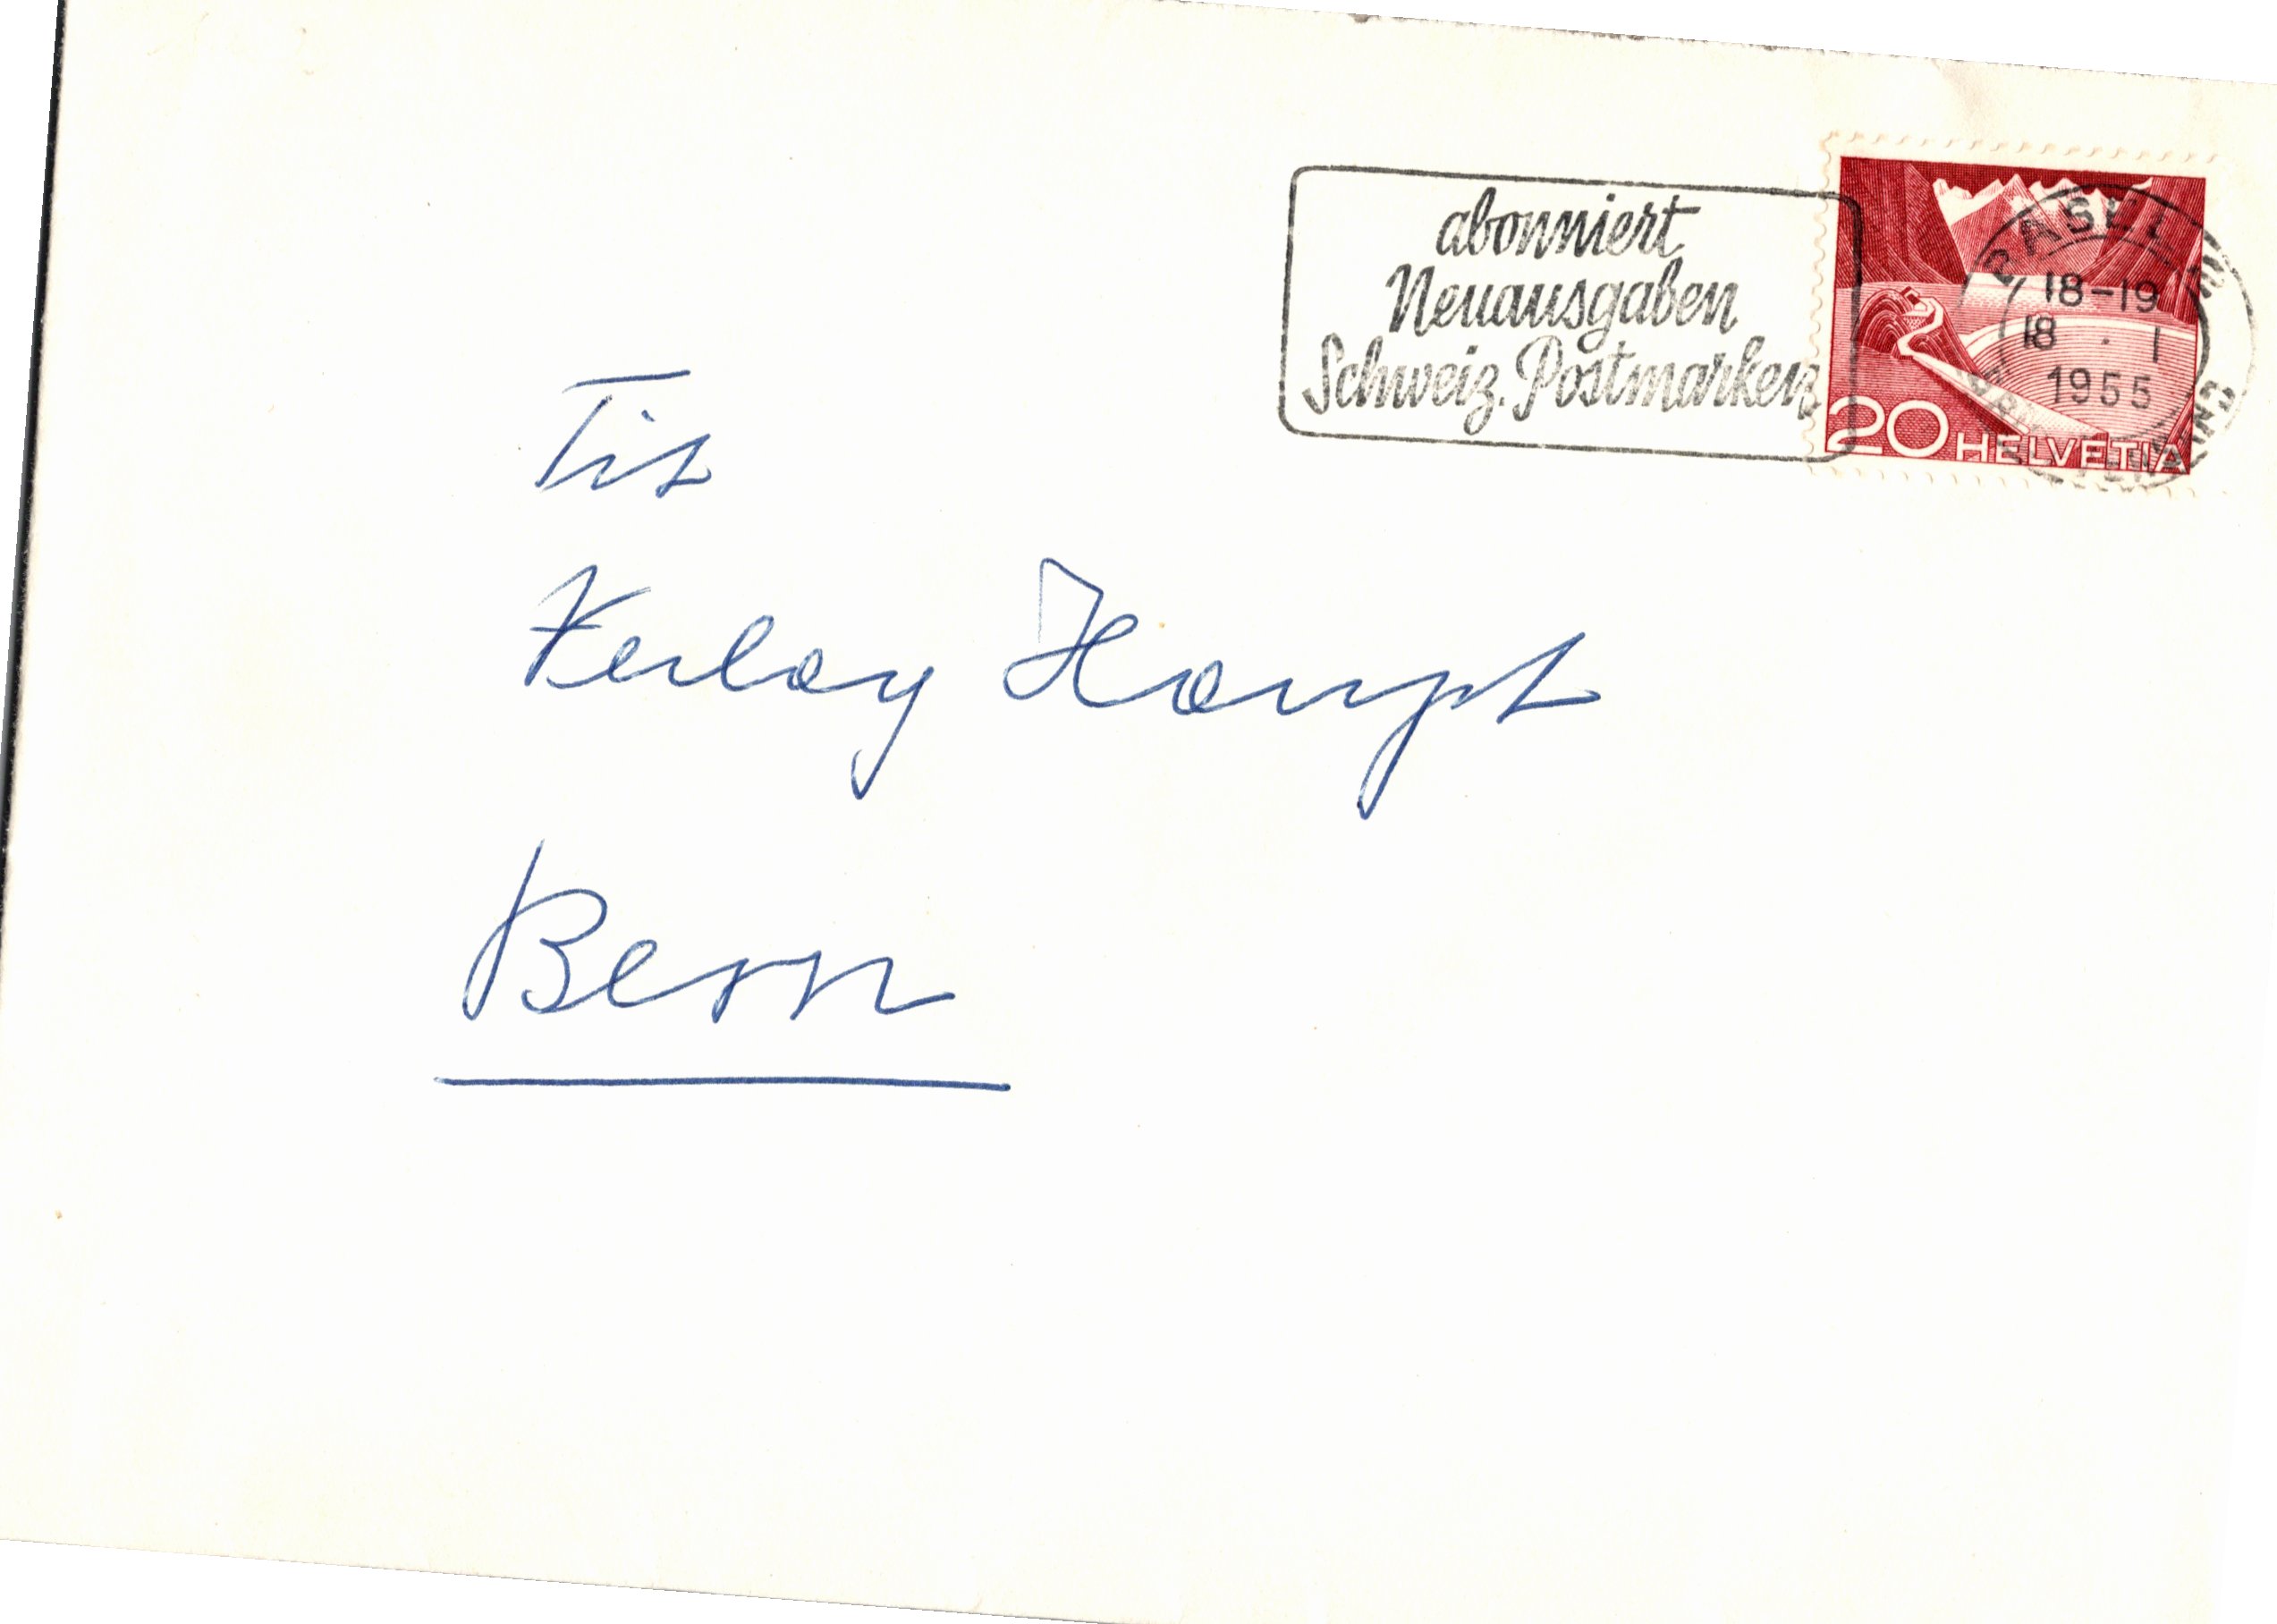 abonniert
Neuausgaben
Schweiz. Postmarken
BASEL 2
18-19
18 . 1
1955
20 HELVETIA
Tit
Verlag Haupt
Bern